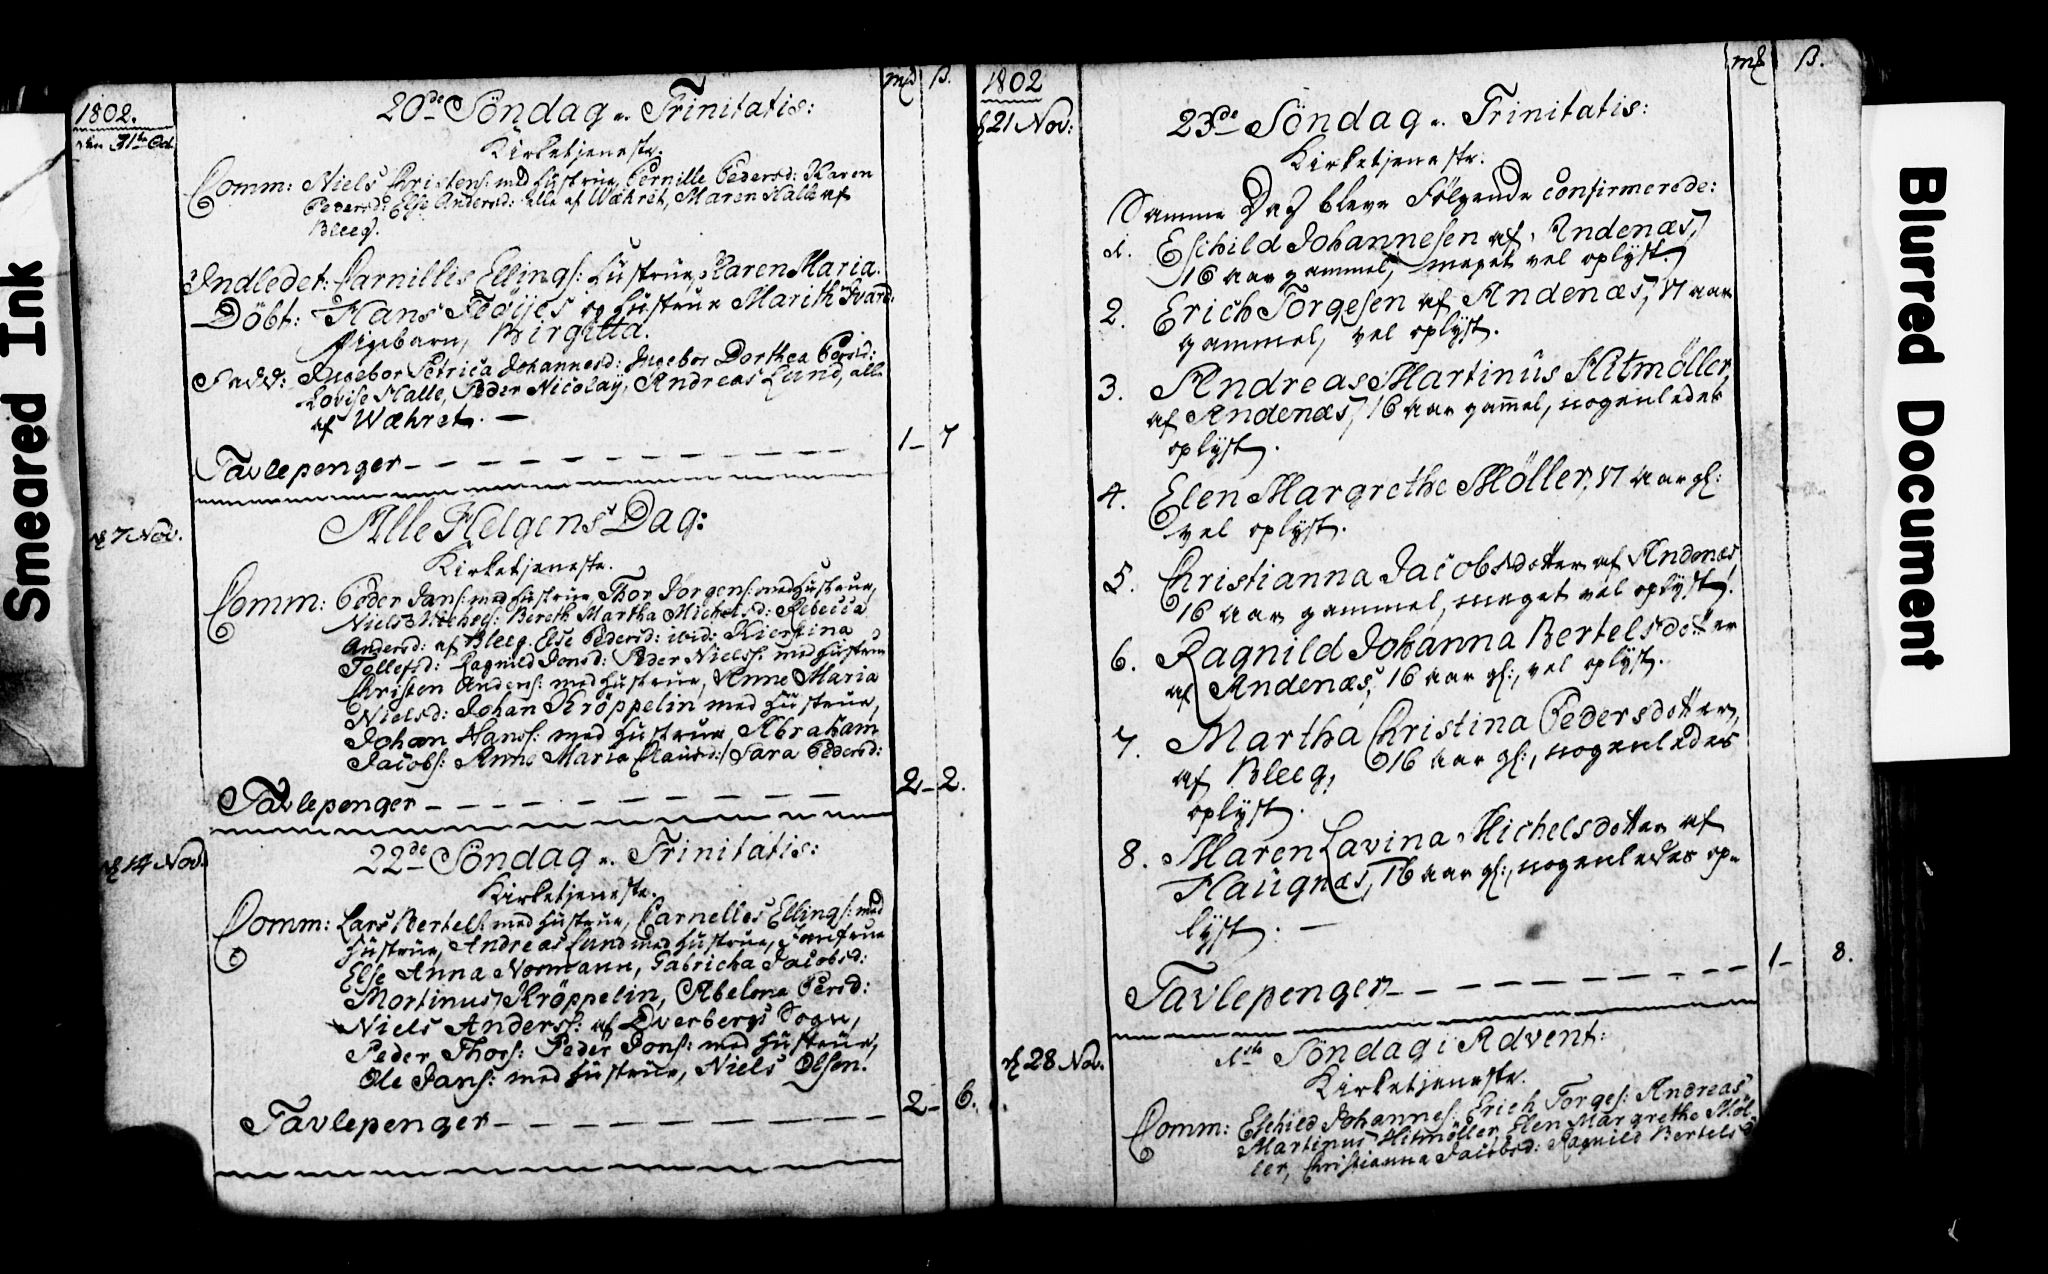 Smeared Ink
1802.
den 31te Oct.
md β.
20de Söndag n. Trinitatis:
Kirketjeneste.
Comm: Niels Christens: med Hustrue, Pernille Pedersd: Karen
Pedersd: Else Andersd: alle af Wæhret, Maren Halle af
Bleeg.
Indledet: Carnillis Ellings: Hustrue, Karen Maria.
Döbt: Hans Fedijes og Hustrue Marith Ivarsd:
Pigebarn, Birgitta.
Fadd: Ingebor Petrica Johannesd: Ingebor Dorthea Persd:
Lovise Halle, Peder Nicolay, Andreas Lund, alle
af Wæhret. —
Tavlepenger — — — 1 — 7
d 7 Nov.
Alle Helgens Dag:
Kirketjeneste.
Comm: Peder Jans: med Hustrue, Thor Jörgens: med Hustrue,
Niels Michels: Bereth Martha Michelsd: Rebecca
Andersd: af Bleeg. Else Pedersd: ibid: Kierstina
Tollefsd: Ragnild Jonsd: Peder Nielss: med Hustrue
Christen Anders: med Hustrue, Anne Maria
Nielsd: Johan Kröppelin med Hustrue,
Johan Hanss: med Hustrue, Abraham
Jacobs: Anne Maria Clausd: Sara Pedersd:
Tavlepenger — — — 2 — 2.
d 14 Nov.
22de Söndag n. Trinitatis:
Kirketjeneste.
Comm: Lars Bertels: med Hustrue, Carnelles Ellings: med
Hustrue, Andreas Lund med Hustrue, Jomfrue
Else Anna Normann, Gabricha Jacobsd:
Mortinus Kröppelin, Abelona Persd:
Niels Anderss: af Dverbergs Sogn,
Peder Thors: Peder Jons: med Hustrue,
Ole Jans: med Hustrue, Niels Olsen.
Tavlepenger — — — 2 — 6.
1802
d 21 Nov:
mk β.
23de Söndag n. Trinitatis:
Kirketjeneste:
Samme Dag bleve Følgende confirmerede:
1. Eschild Johannesen af Andenæs,
16 aar gammel, meget vel oplyst.
2. Erich Torgesen af Andenæs, 17 aar
gammel, vel oplyst.
3. Andreas Martinus Hitmöller,
af Andenæs, 16 aar gam̄el, nogenledes
oplyst.
4. Elen Margrethe Möller, 17 aar gl:
vel oplyst.
5. Christianna Jacobsdotter af Andenæs,
16 aar gammel, meget vel oplyst.
6. Ragnild Johanna Bertelsdotter
af Andenæs, 16 aar gl:, vel oplyst.
7. Martha Christina Pedersdotter,
af Bleeg, 16 aar gl:, nogenledes
oplyst.
8. Maren Lavina Michelsdotter af
Haugnæs, 16 aar gl:, nogenledes op-
lyst. —
Tavlepenger — — — 1 — 8.
d 28 Nov.
1ste Söndag i Advent:
Kirketjeneste.
Comm: Eschild Johannes: Erich Torges: Andreas
Martinus Hitmöller, Elen Margrethe Möl-
ler, Christianna Jacobsd: Ragnild Bertelsd
Blurred Document